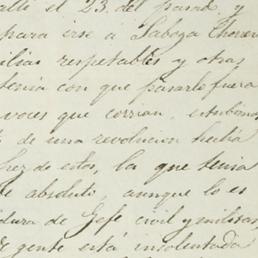 alle el 23. del pasado, y
para irse à Sabaza
ilias respetables y otras
tenia con que pasarlo fuera
voces que corrian, estubimos
de una revolucion hecha
hez de estos, la que tenia
te absoluto, aunque lo es
dura de Gefe civil y militar,
gente está insolentada